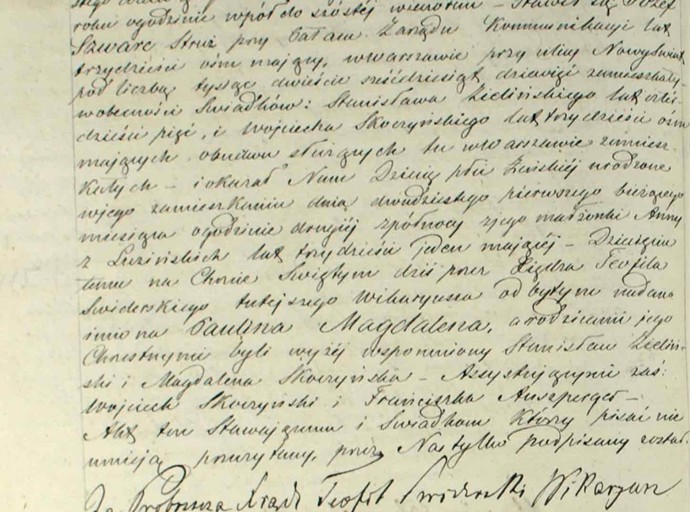 roku ogodzinie wpół do szóstej wieczorem – Stawił się Józef
Szwarc Stróż przy Zarządu Kommunikacji lat
trzydzieści ośm mający, wWarszawie przy ulicy NowySwiat
pod liczbą tysiąc dwieście sześćdziesiąt dziewięć zamieszkały –
wobecności Swiadków: Stanisława Zielińskiego lat czter-
dzieści pięć, i Wojciecha Skoczyńskiego lat trzydzieści ośm
mających, obudwu służących tu wWarszawie zamiesz-
kałych – iokazał Nam Dziecię płci Żeńskiej urodzone
wjego zamieszkaniu dnia dwudziestego pierwszego bieżącego
miesiąca ogodzinie drugiej zpółnocy zjego małżonki Anny
z Luzińskich lat trzydzieści jeden mającej – Dziecięciu
temu na Chrzcie Swiętym dziś przez Xiędza Teofila
Swiderskiego tutejszego Wikaryusza odbytym nadano
imiona Paulina Magdalena, arodzicami jego
Chrzestnymi byli wyżej wspomniony Stanisław Zieliń-
ski i Magdalena Skoczyńska – Assystującymi zaś:
Wojciech Skoczyński i Franciszka Auszperger –
Akt ten Stawającemu i Swiadkom którzy pisać nie
umieją przeczytany, przez Nas tylko podpisany został.
Za Proboszcza Xiądz Teofil Swiderski Wikaryusz